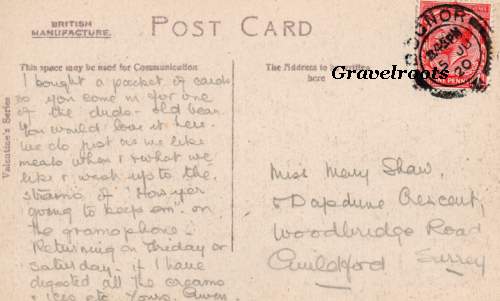 BRITISH
MANUFACTURE.
POST CARD
This space may be used for Communication
The Address to be written
here
Valentine's Series
BOGNOR
20
Gravelroots
I bought a packet of cards
so you come in for one
of the duds - old bean.
You would love it here.
We do just as we like
meals when & what we
like & wash up to the
strains of "How yer
going to keep em" on
the gramophone.
Returning on Friday or
Saturday - if I have
digested all the creams
& ices etc. Yours, Gwen.
Miss Mary Shaw.
5 Dapdune Crescent,
Woodbridge Road
Guildford Surrey